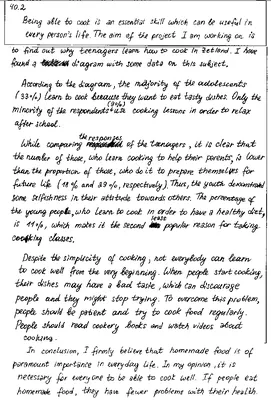 40.2
Being able to cook is an essential skill which can be useful in
every person's life. The aim of the project I am working on is
to find out why teenagers learn how to cook in Zetland. I have
found a diagram with some data on this subject.
According to the diagram, the majority of the adolescents
(33%) learn to cook because they want to eat tasty dishes. Only the
minority of the respondents use cooking lessons in order to relax
after school.
While comparing the responses of the teenagers, it is clear that
the number of those, who learn cooking to help their parents, is lower
than the proportion of those, who do it to prepare themselves for
future life (and respectively). Thus, the youth demonstrated
some selfishness in their attitude towards others. The percentage of
the young people, who learn to cook in order to have a healthy diet,
is 11%, which makes it the second least popular reason for taking
cooking classes.
Despite the simplicity of cooking, not everybody can learn
to cook well from the very beginning. When people start cooking,
their dishes may have a bad taste, which can discourage
people and they might stop trying. To overcome this problem,
people should be patient and try to cook food regularly.
People should read cookery books and watch videos about
cooking.
In conclusion, I firmly believe that homemade food is of
paramount importance in everyday life. In my opinion, it is
necessary for everyone to be able to cook well. If people eat
homemade food, they have fewer problems with their health.